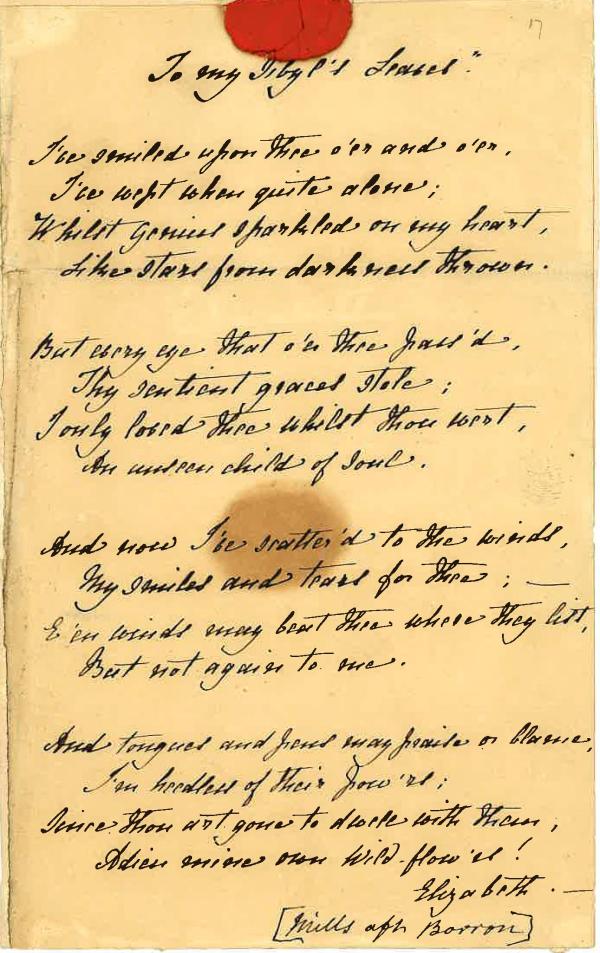 17
To my Sibyl's Leaves".
I've smiled upon thee o'er and o'er,
I've wept when quite alone;
Whilst Genius sparkled on my heart,
Like stars from darkness thrown.
But every eye that o'er thee pass'd,
Thy sentient graces stole;
I only loved thee whilst thou wert,
An unseen child of soul.
And now I've scatter'd to the winds,
My smiles and tears for thee; —
E'en winds may beat thee where they list,
But not again to me.
And tongues and pens may praise or blame,
I'm heedless of their pow'rs;
Since thou art gone to dwell with them,
Adieu mine own wild-flow'rs!
Elizabeth. —
[Mills aft Borron]